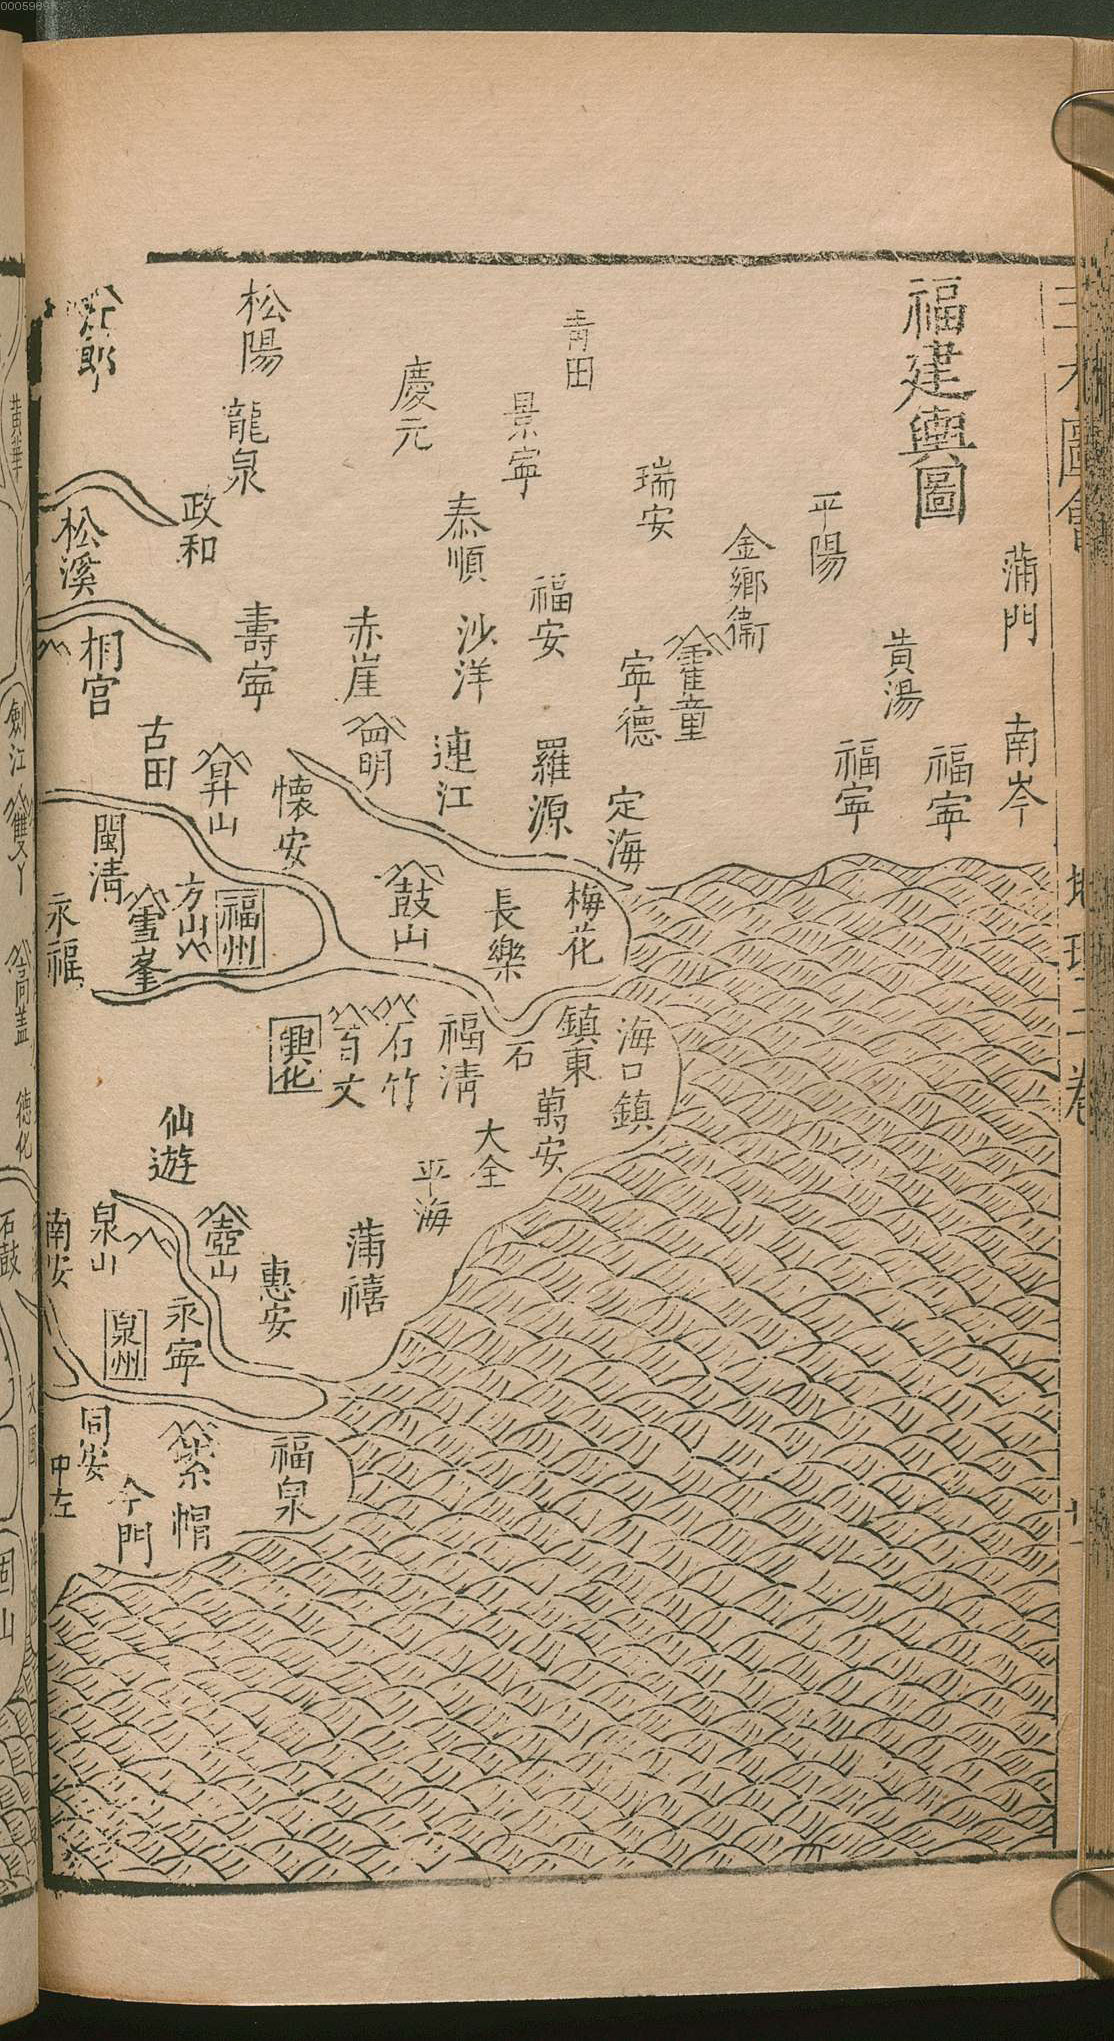 福建輿圖
蒲門
南岑
福寧
黃湯
平陽
福寧
金鄉衛
霍童
瑞安
寧德
定海
青田
福安
羅源
梅花
景寧
泰順
沙洋
連江
長樂
慶元
赤崖
四明
鼓山
松陽
龍泉
壽寧
懷安
政和
昇山
福州
古田
方山
雪峯
松溪
桐宮
閩清
永福
海口鎮
鎮東
萬安
石
大全
福清
平海
石竹
百丈
蒲禧
興化
惠安
福泉
壺山
仙遊
永寧
紫帽
泉山
泉州
今門
南安
同安
中左
黃華
劍江
高蓋
德化
石鼓
文圃
地理二卷
0005989